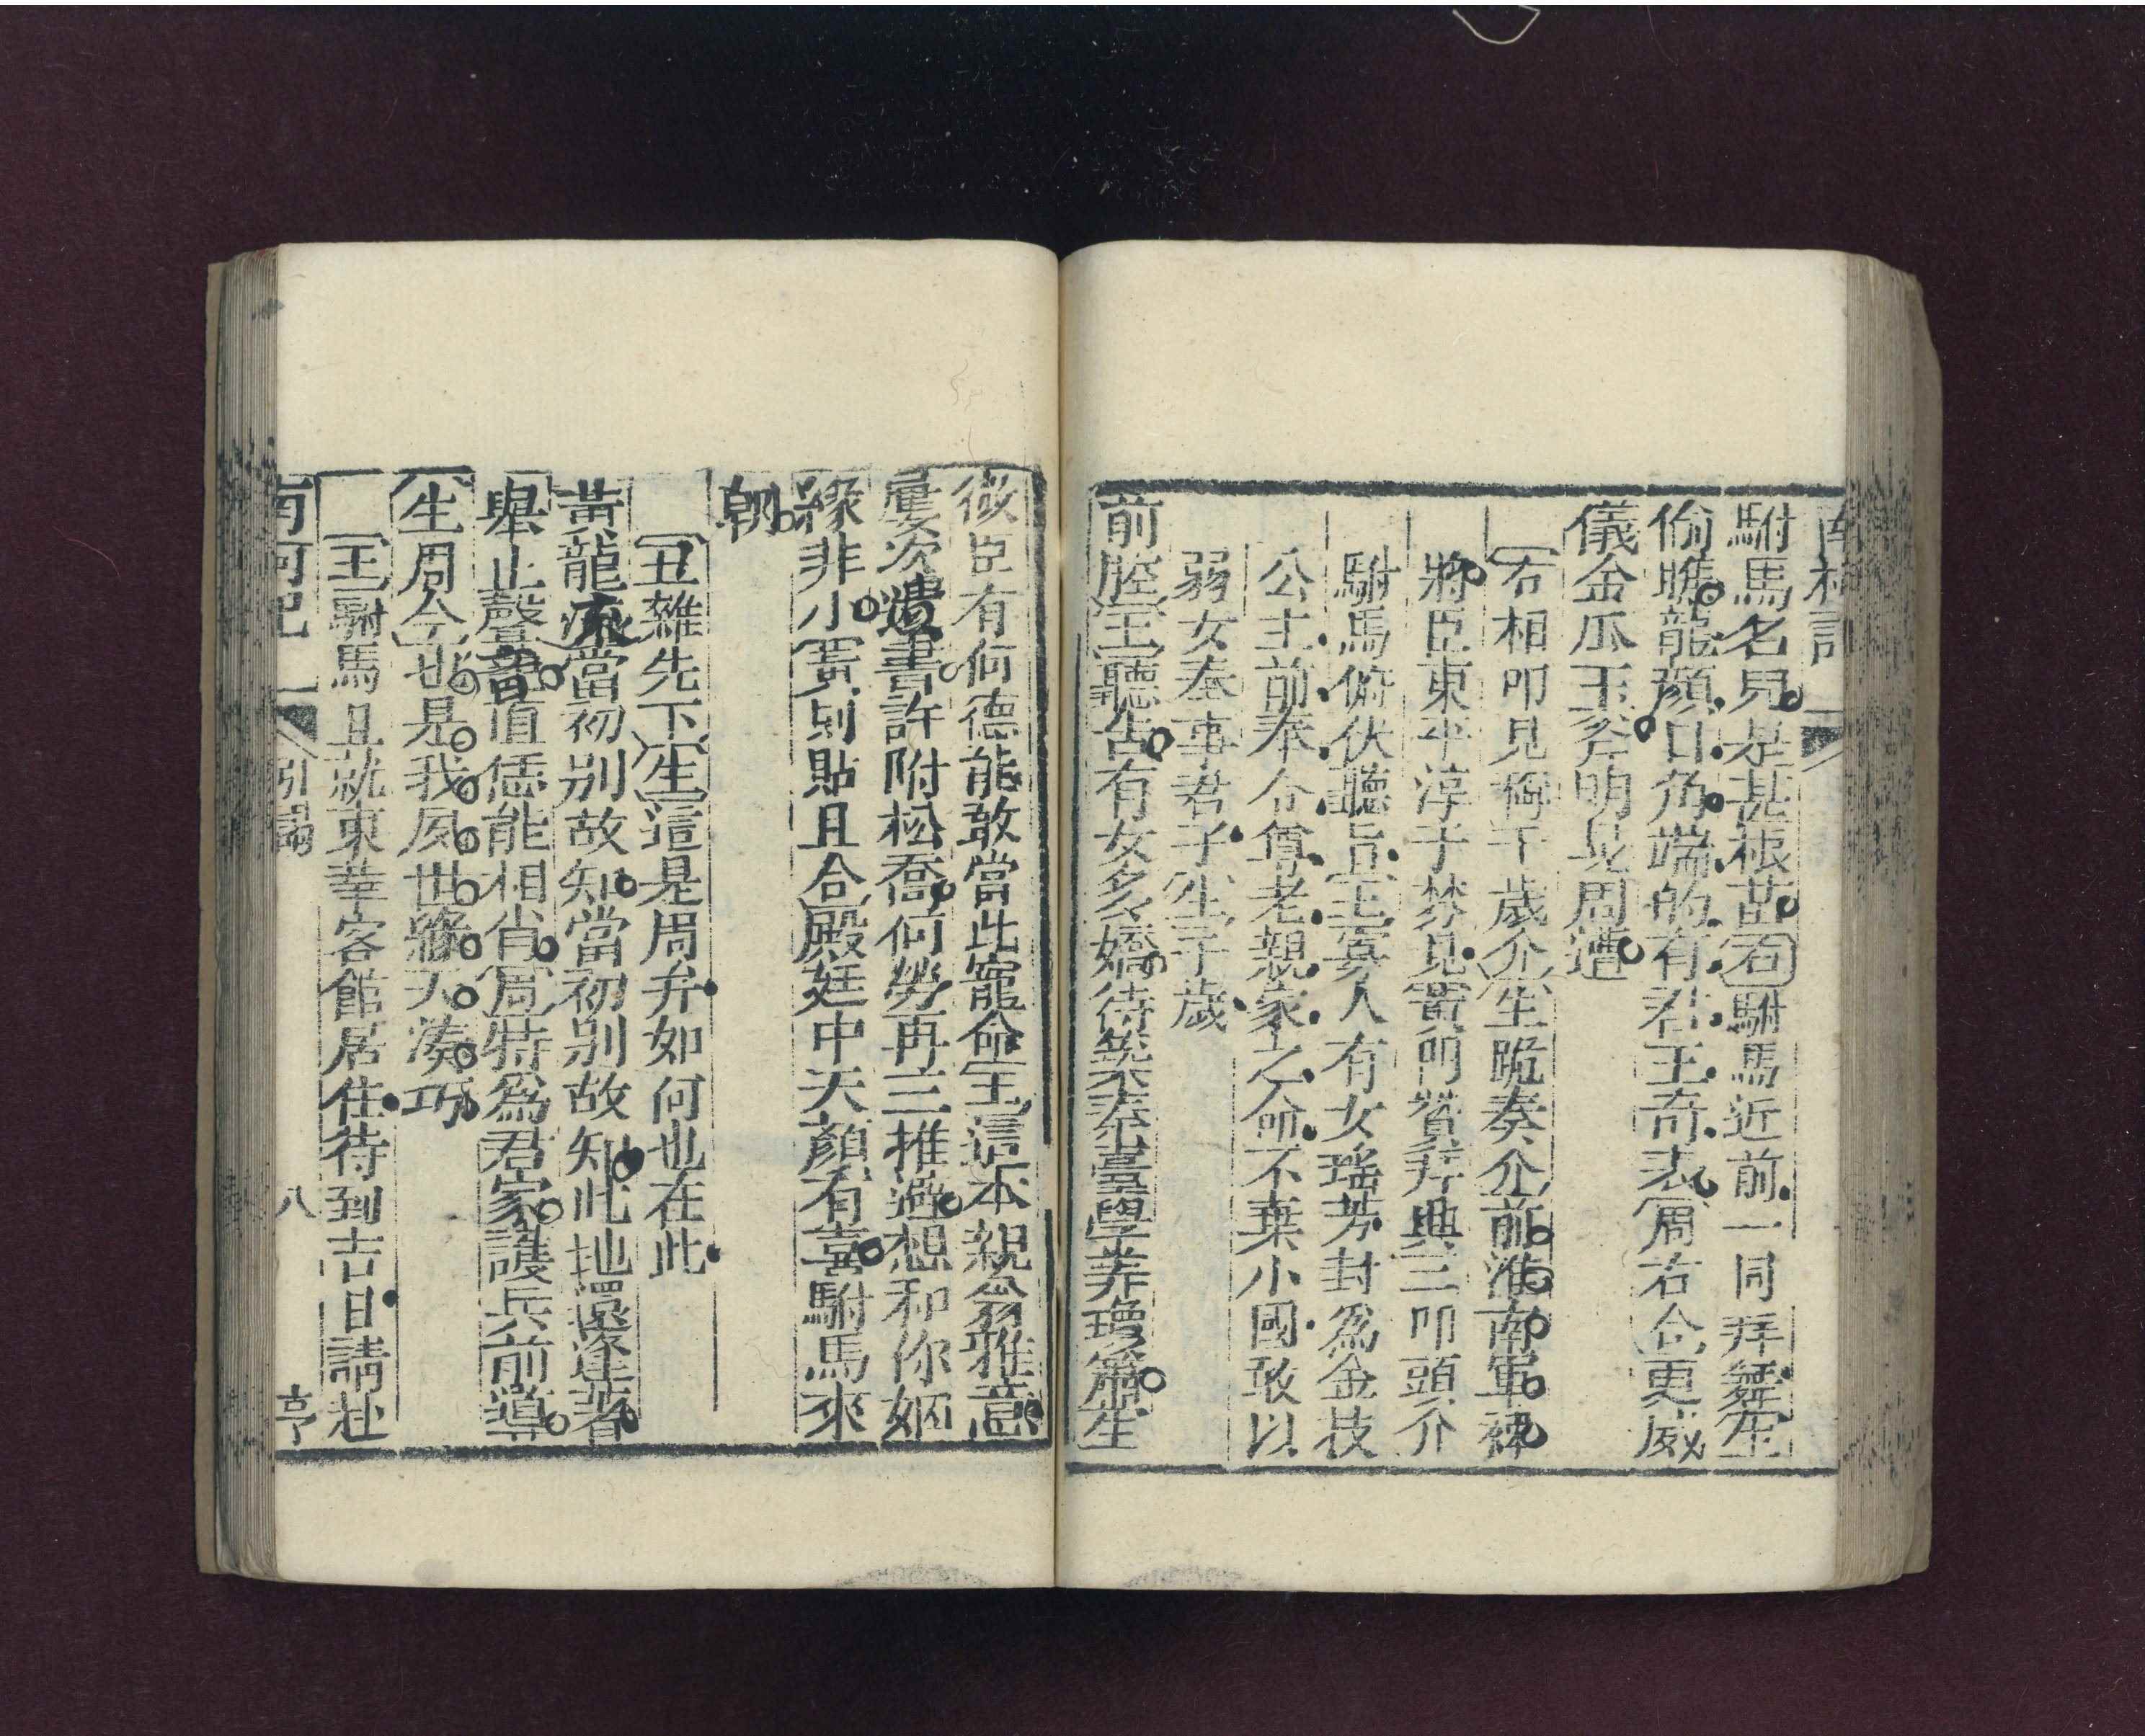 南柯記
駙馬名兒是甚根苗右駙馬近前一同拜舞生
偷瞧龍顏日角端的有君王奇表周右合更威
儀金瓜玉斧明晃周遭
右相叩見介千歲介生跪奏介前淮南軍裨
將臣東平淳于棼見黃門贊拜興三叩頭介
駙馬俯伏聽旨王寡人有女瑤芳封為金枝
公主前奉令尊老親家之命不棄小國敢以
弱女奉事君子生千歲
前腔王聽告有女多嬌待築秦臺學弄瓊簫生
微臣有何德能敢當此寵命王這本親翁雅意
屢次遺書許附松喬何勞再三推遜想和你姻
緣非小黃別貼且合殿廷中天顏有喜駙馬來
朝
丑雜先下生這是周弁如何也在此
黃龍㾗當初別故知當初別故知此地還逢着
舉止聲音值恁能相肖周特為君家護兵前導
生周合也是我夙世緣天湊巧
王駙馬且就東華客館居住待到吉日請赴
南柯記 引謁 八 亭